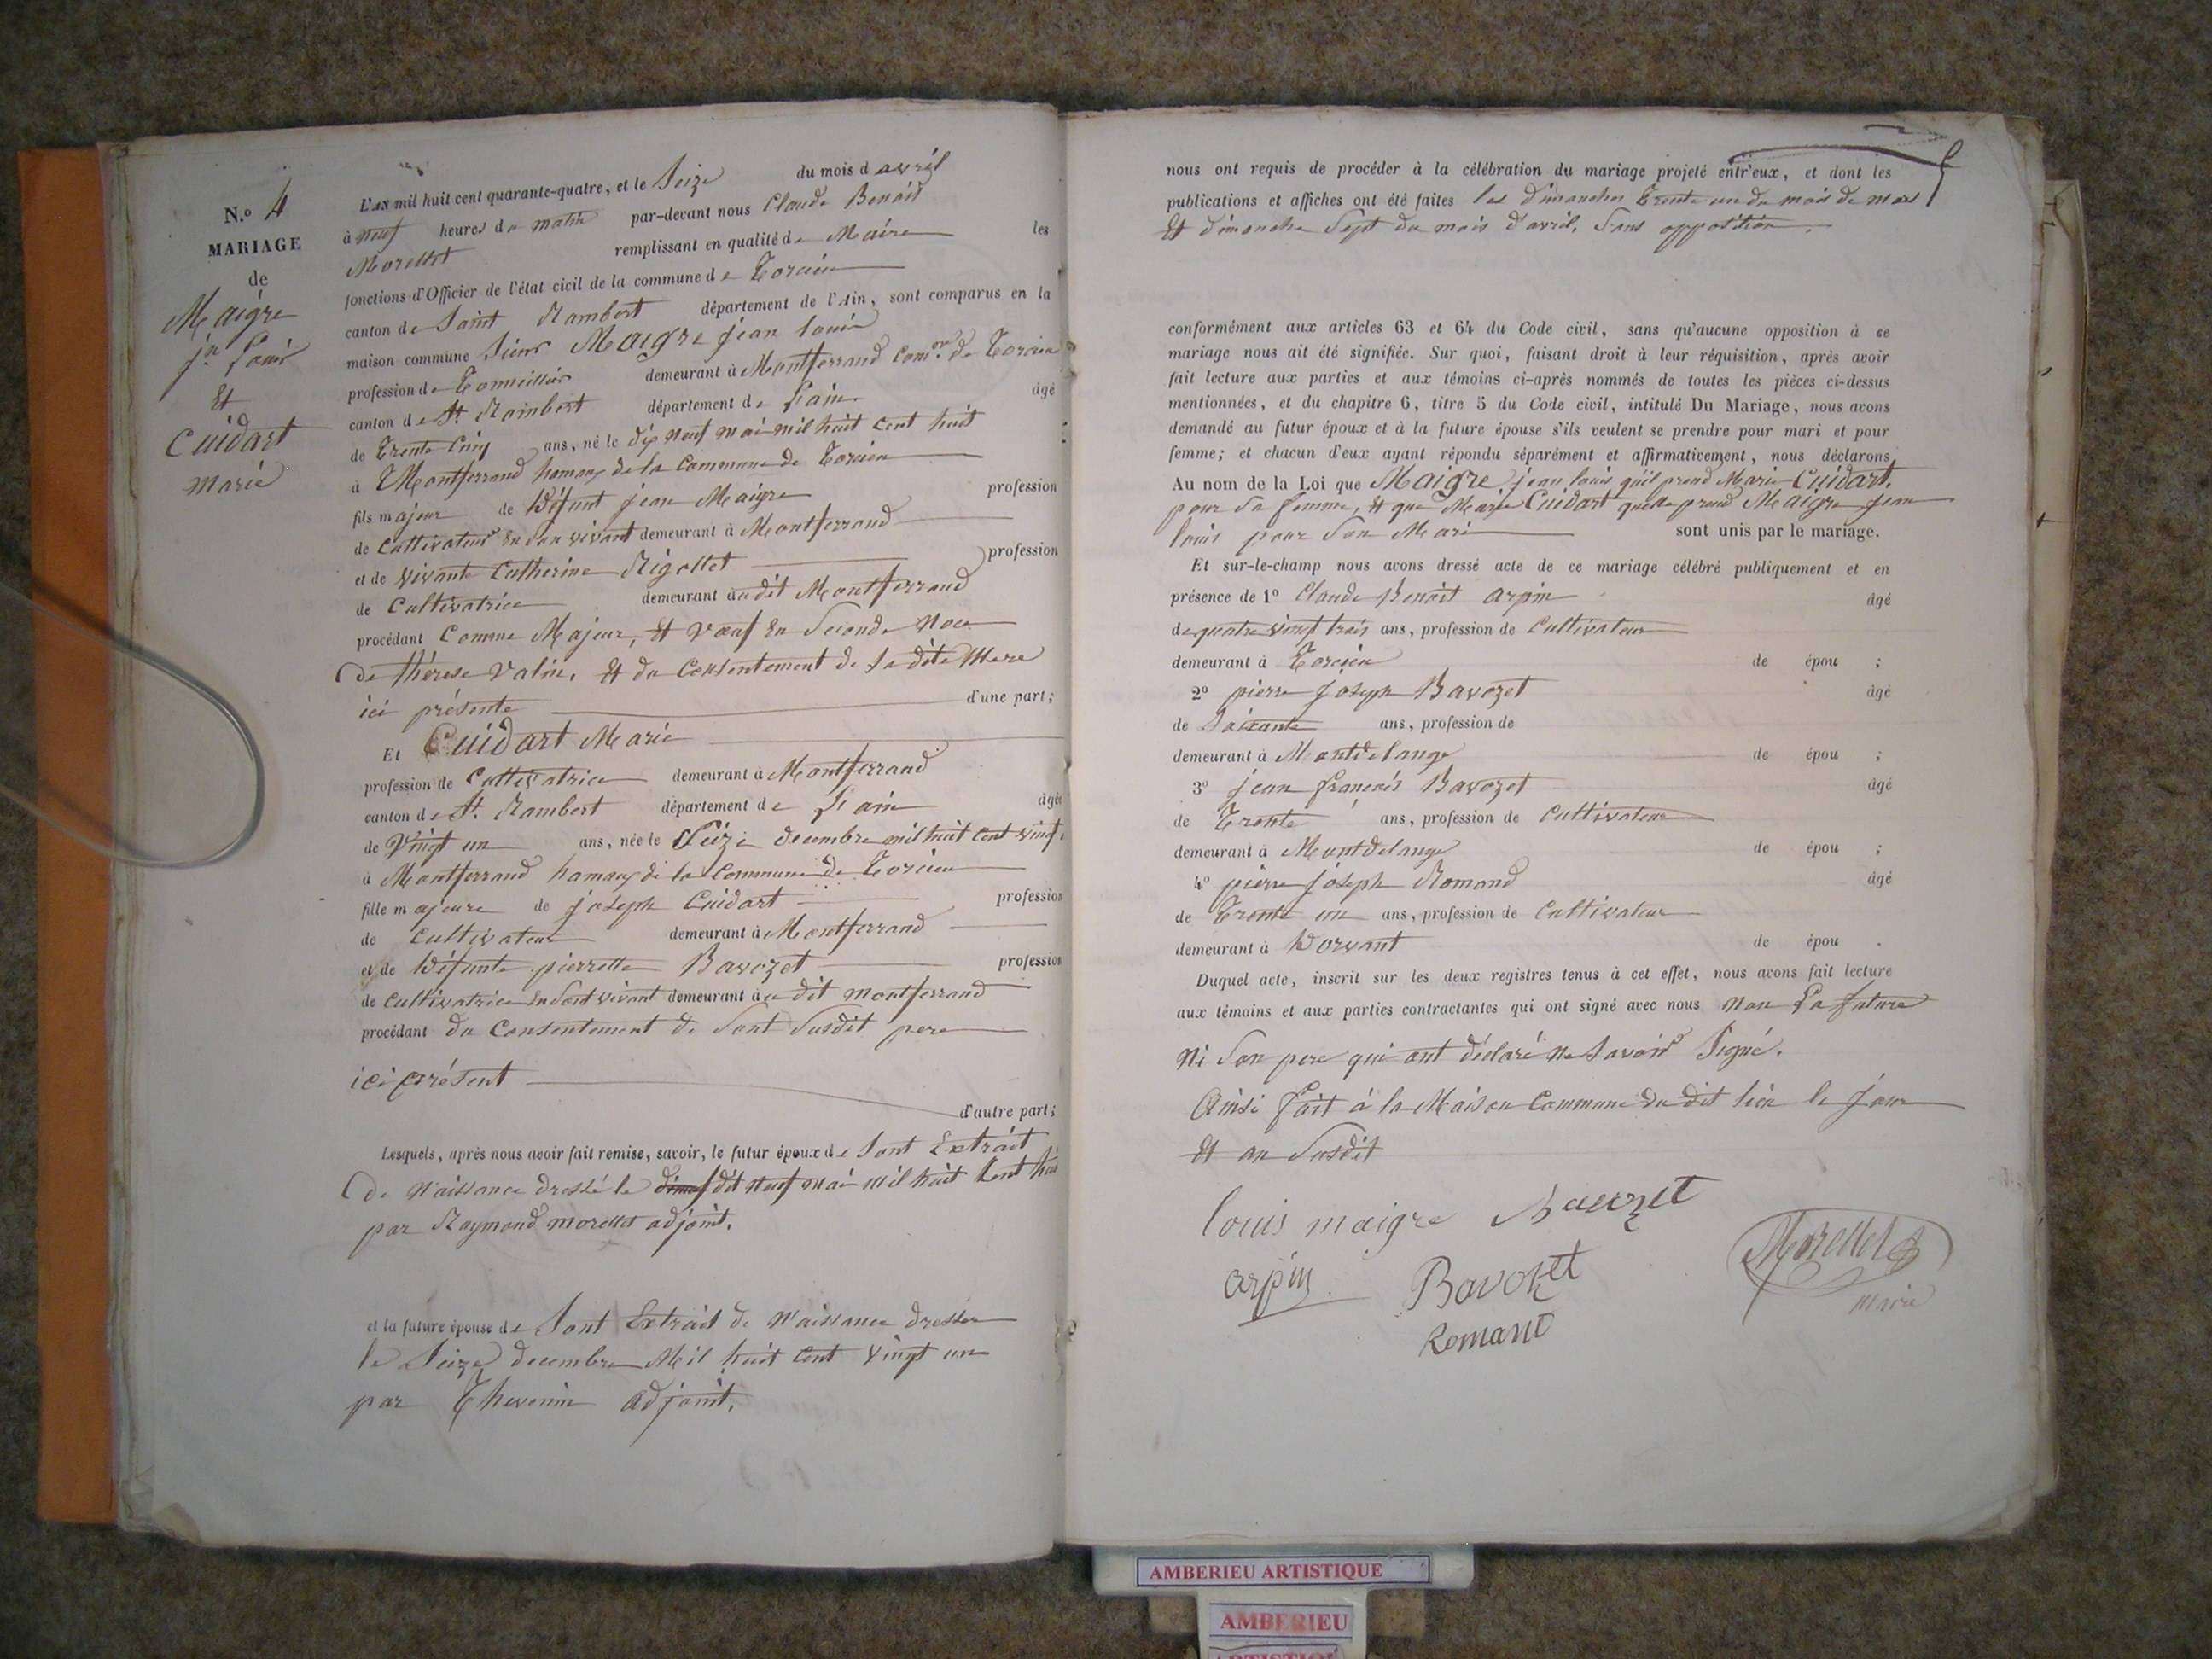 N.o 4
MARIAGE
de
Maigre
jn Louis
Et
Cuidart
marie
L'AN mil huit cent quarante-quatre, et le Seize du mois d avril
à neuf heures du matin par-devant nous Claude Benoit
Morellet remplissant en qualité de Maire les
fonctions d'Officier de l'état civil de la commune de Torcieu
canton de Saint Rambert département de l'Ain, sont comparus en la
maison commune Sieur Maigre jean louis
profession de Tonnellier demeurant à Montferrand Comne de Torcieu
canton de St Rambert département de L'ain âgé
de Trente Cinq ans, né le dix neuf mai mil huit cent huit
à Montferrand hamaux de la Commune de Torcieu
fils majeur de Défunt jean Maigre profession
de Cultivateur en son vivant demeurant à Montferrand
et de vivante Catherine Rigollet profession
de Cultivatrice demeurant audit Montferrand
procédant Comme Majeur, et Vœuf en Seconde Noce
de thérese Valin, et du Consentement de Sa dite Mere
ici présente d'une part;
Et Cuidart Marie
profession de Cultivatrice demeurant à Montferrand
canton de St. Rambert département de L'ain âgée
de Vingt un ans, née le Seize decembre mil huit cent vingt
à Montferrand hamaux de la Commune de Torcieu
fille majeure de joseph Cuidart profession
de Cultivateur demeurant à Montferrand
et de Défunte pierrette Bavozet profession
de cultivatrice en Sont vivant demeurant au dit montferrand
procédant du Consentement de Sont Susdit pere
ici présent
d'autre part;
Lesquels, après nous avoir fait remise, savoir, le futur époux de Sont Extrait
de Naissance dressé le dit neuf mai mil huit Cent huit
par Raymond morellet adjoint.
et la future épouse de Sont Extrait de Naissance dresser
le Seize decembre Mil huit Cent vingt un
par Thevenin adjoint.
nous ont requis de procéder à la célébration du mariage projeté entr'eux, et dont les
publications et affiches ont été faites les dimanches Trente un du mois de mars
Et dimanche Sept du mois d'avril, Sans opposition.
conformément aux articles 63 et 64 du Code civil, sans qu'aucune opposition à ce
mariage nous ait été signifiée. Sur quoi, faisant droit à leur réquisition, après avoir
fait lecture aux parties et aux témoins ci-après nommés de toutes les pièces ci-dessus
mentionnées, et du chapitre 6, titre 5 du Code civil, intitulé Du Mariage, nous avons
demandé au futur époux et à la future épouse s'ils veulent se prendre pour mari et pour
femme; et chacun d'eux ayant répondu séparément et affirmativement, nous déclarons,
Au nom de la Loi que Maigre jean louis qu'il prend Marie Cuidart.
pour Sa femme, et que Marie Cuidart quelle prend Maigre jean
louis pour Son Mari sont unis par le mariage.
Et sur-le-champ nous avons dressé acte de ce mariage célébré publiquement et en
présence de 1o Claude Benoit arpin âgé
de quatre vingt trois ans, profession de Cultivateur
demeurant à Torcieu de épou ;
2o pierre joseph Bavozet âgé
de Soixante ans, profession de
demeurant à Montdelange de épou ;
3o jean françois Bavozet âgé
de Trente ans, profession de Cultivateur
demeurant à Montdelange de épou ;
4o pierre joseph Romand âgé
de Trente un ans, profession de Cultivateur
demeurant à Dorvant de épou .
Duquel acte, inscrit sur les deux registres tenus à cet effet, nous avons fait lecture
aux témoins et aux parties contractantes qui ont signé avec nous Non La future
Ni Son pere qui ont déclaré ne Savoir Signé.
Ainsi fait à la Maison Commune du dit lieu le jour
Et an Susdit
louis maigre Bavozet
arpin Bavozet Morellet
maire
Romand
AMBERIEU ARTISTIQUE
AMBERIEU
ARTISTIQUE